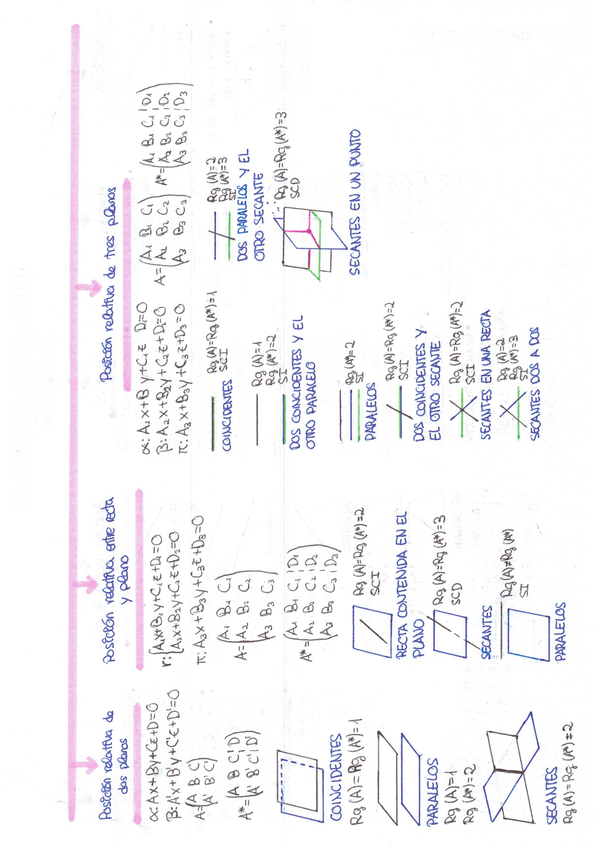 Posición relativa de
dos planos
α: Ax+By+Cz+D=0
β: A'x+B'y+C'z+D'=0
A=(A B C
A' B' C')
A*=(A B C | D
A' B' C' | D')
COINCIDENTES
Rg(A)=Rg(A*)=1
PARALELOS
Rg(A)=1
Rg(A*)=2
SECANTES
Rg(A)=Rg(A*)=2
Posición relativa entre recta
y plano
r: {A1x+B1y+C1z+D1=0
A2x+B2y+C2z+D2=0
π: A3x+B3y+C3z+D3=0
A=(A1 B1 C1
A2 B2 C2
A3 B3 C3)
A*=(A1 B1 C1 | D1
A2 B2 C2 | D2
A3 B3 C3 | D3)
Rg(A)=Rg(A*)=2
SCI
RECTA CONTENIDA EN EL
PLANO
Rg(A)=Rg(A*)=3
SCD
SECANTES
Rg(A)≠Rg(A*)
SI
PARALELOS
Posición relativa de tres planos
α: A1x+B1y+C1z D1=0
β: A2x+B2y+C2z+D2=0
π: A3x+B3y+C3z+D3=0
A=(A1 B1 C1
A2 B2 C2
A3 B3 C3)
A*=(A1 B1 C1 | D1
A2 B2 C2 | D2
A3 B3 C3 | D3)
Rg(A)=Rg(A*)=1
SCI
COINCIDENTES
Rg(A)=1
Rg(A*)=2
SI
DOS COINCIDENTES Y EL
OTRO PARALELO
Rg(A*)=2
SI
PARALELOS
Rg(A)=Rg(A*)=2
SCI
DOS COINCIDENTES Y
EL OTRO SECANTE
Rg(A)=Rg(A*)=2
SCI
SECANTES EN UNA RECTA
Rg(A)=2
Rg(A*)=3
SI
SECANTES DOS A DOS
Rg(A)=2
Rg(A*)=3
SI
DOS PARALELOS Y EL
OTRO SECANTE
Rg(A)=Rg(A*)=3
SCD
SECANTES EN UN PUNTO